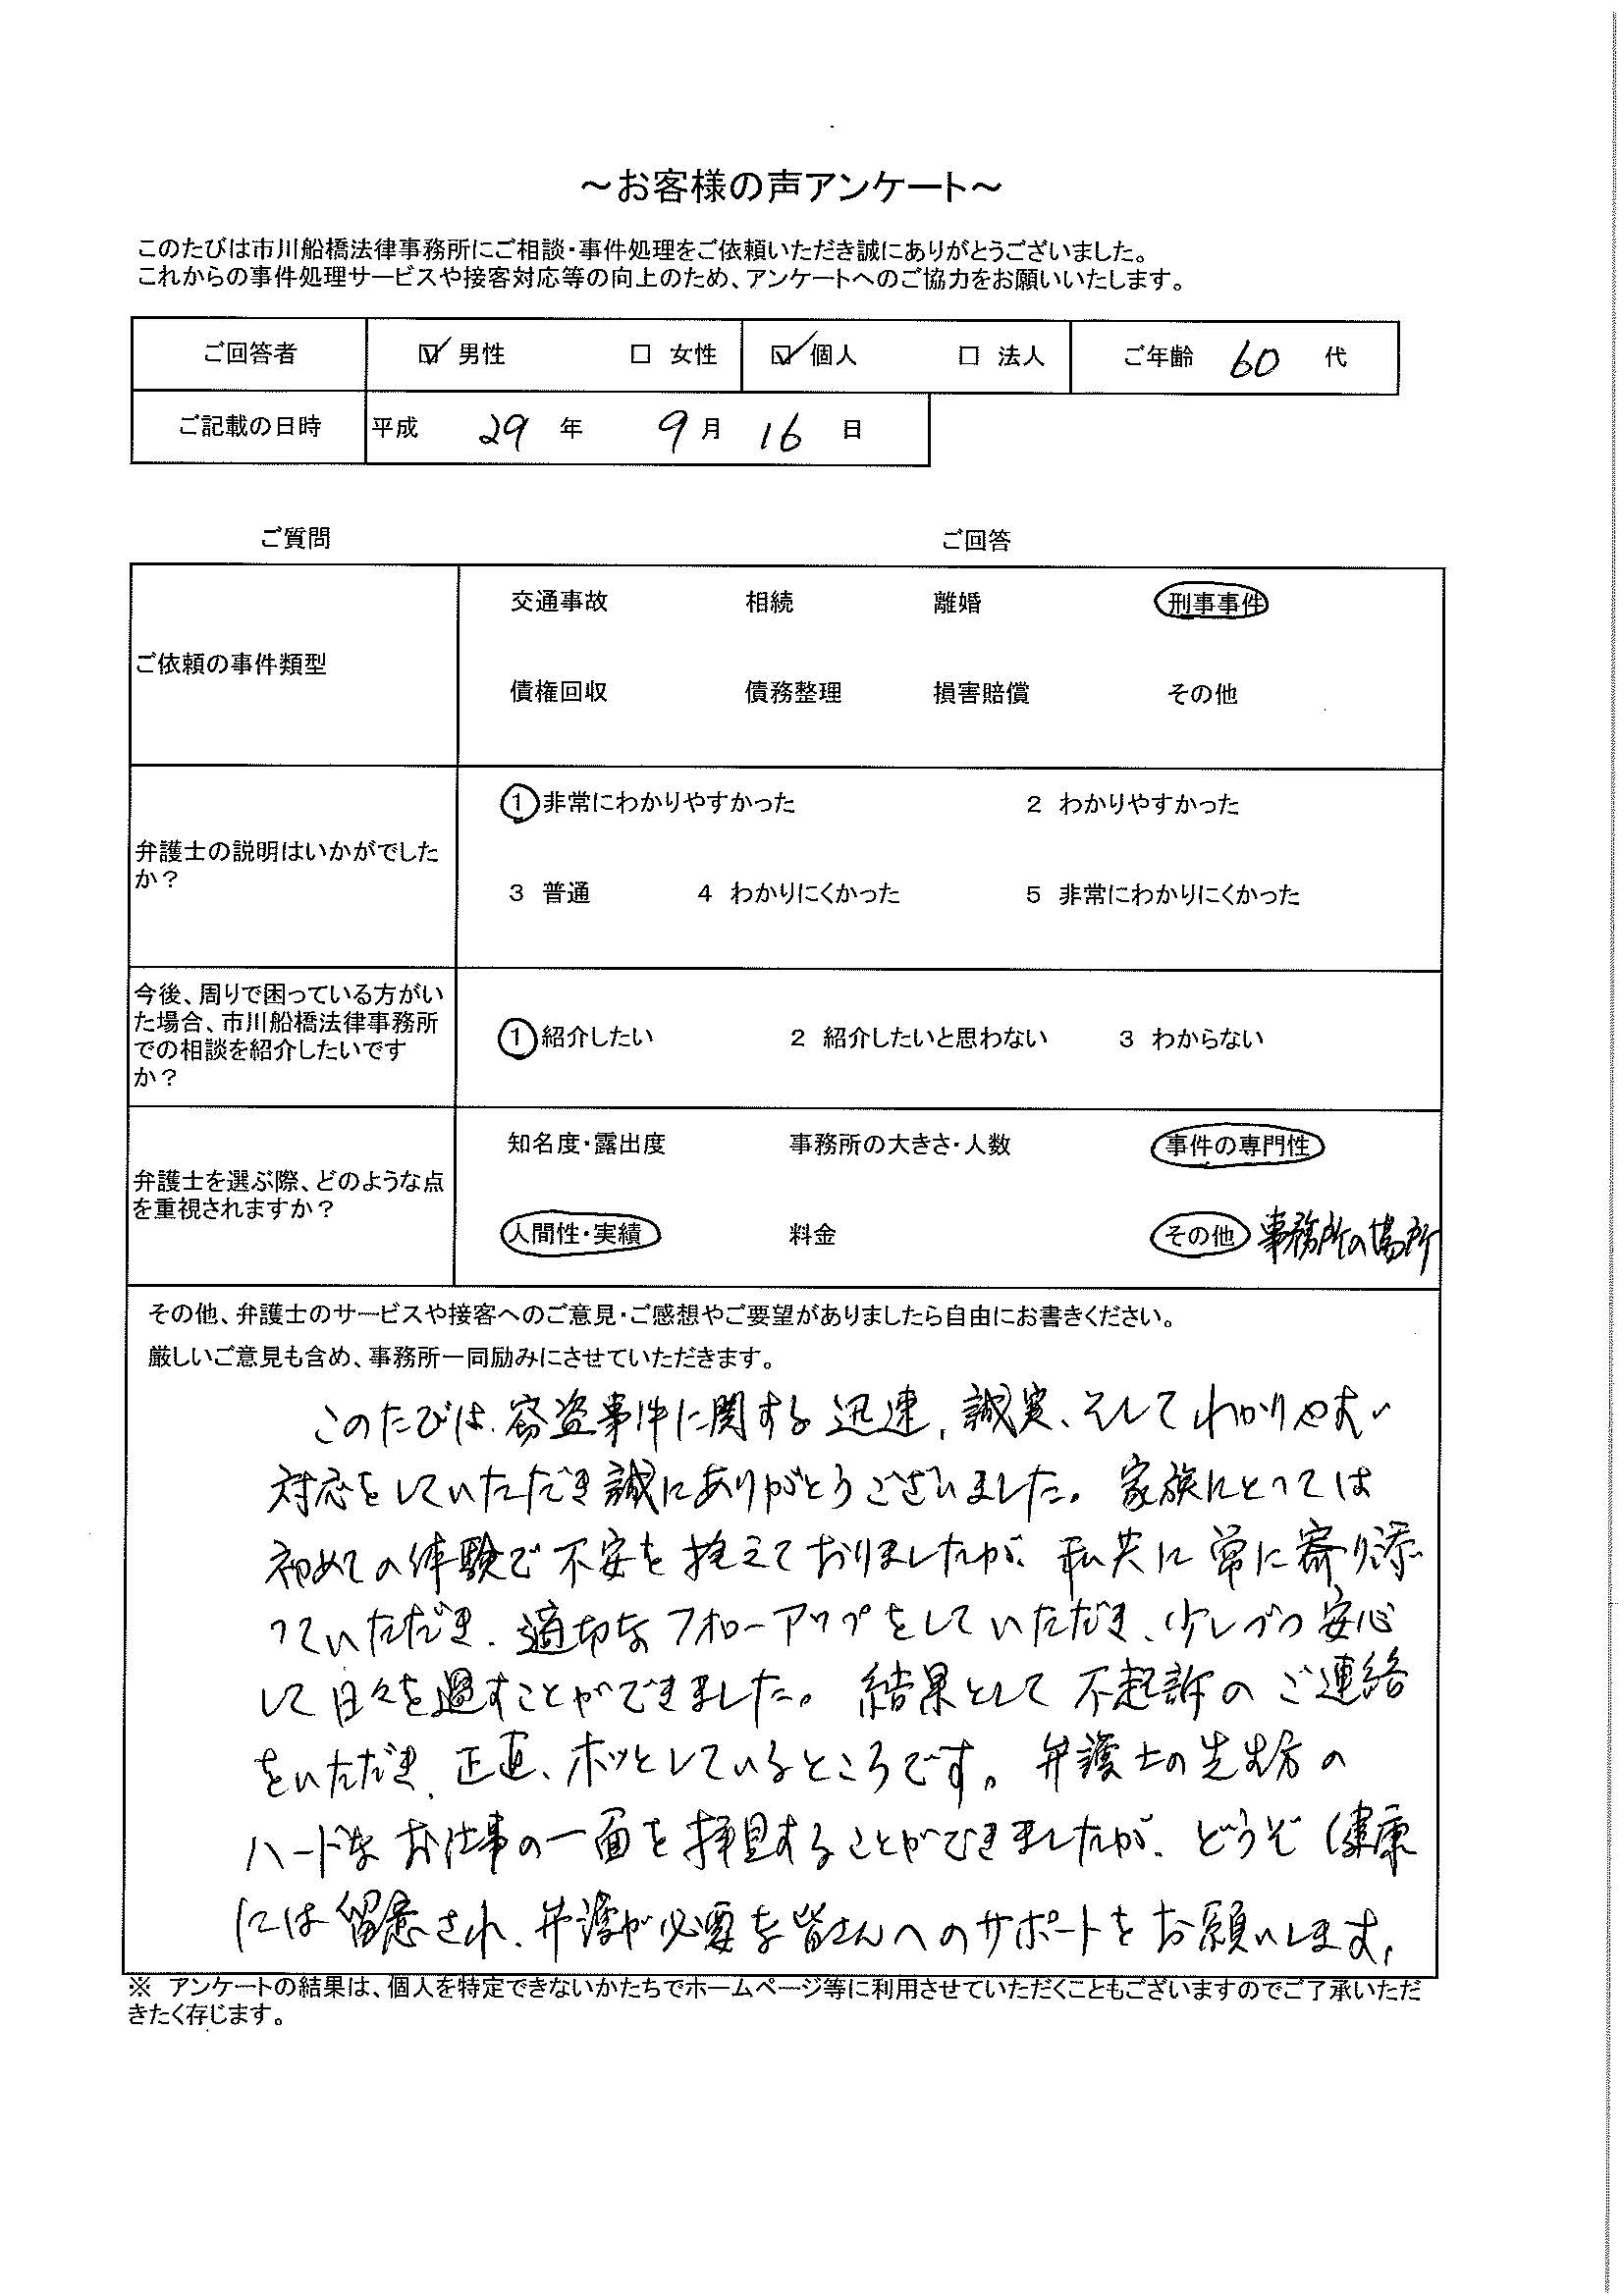 ～お客様の声アンケート～
このたびは市川船橋法律事務所にご相談・事件処理をご依頼いただき誠にありがとうございました。
これからの事件処理サービスや接客対応等の向上のため、アンケートへのご協力をお願いいたします。
ご回答者 ☑ 男性 □ 女性 ☑ 個人 □ 法人 ご年齢 60 代
ご記載の日時 平成 29 年 9 月 16 日
ご質問 ご回答
ご依頼の事件類型
交通事故 相続 離婚 刑事事件
債権回収 債務整理 損害賠償 その他
弁護士の説明はいかがでした
か？
1 非常にわかりやすかった 2 わかりやすかった
3 普通 4 わかりにくかった 5 非常にわかりにくかった
今後、周りで困っている方がい
た場合、市川船橋法律事務所
での相談を紹介したいです
か？
1 紹介したい 2 紹介したいと思わない 3 わからない
弁護士を選ぶ際、どのような点
を重視されますか？
知名度・露出度 事務所の大きさ・人数 事件の専門性
人間性・実績 料金 その他 事務所の場所
その他、弁護士のサービスや接客へのご意見・ご感想やご要望がありましたら自由にお書きください。
厳しいご意見も含め、事務所一同励みにさせていただきます。
このたびは、窃盗事件に関する迅速、誠実、そしてわかりやすい
対応をしていただき誠にありがとうございました。家族にとっては
初めての体験で不安を抱えておりましたが、私共に常に寄り添
っていただき、適切なフォローアップをしていただき、少しづつ安心
して日々を過すことができました。結果として不起訴のご連絡
をいただき、正直、ホッとしているところです。弁護士の先生方の
ハードなお仕事の一面を拝見することができましたが、どうぞ健康
には留意され、弁護が必要な皆さんへのサポートをお願いします。
※ アンケートの結果は、個人を特定できないかたちでホームページ等に利用させていただくこともございますのでご了承いただ
きたく存じます。